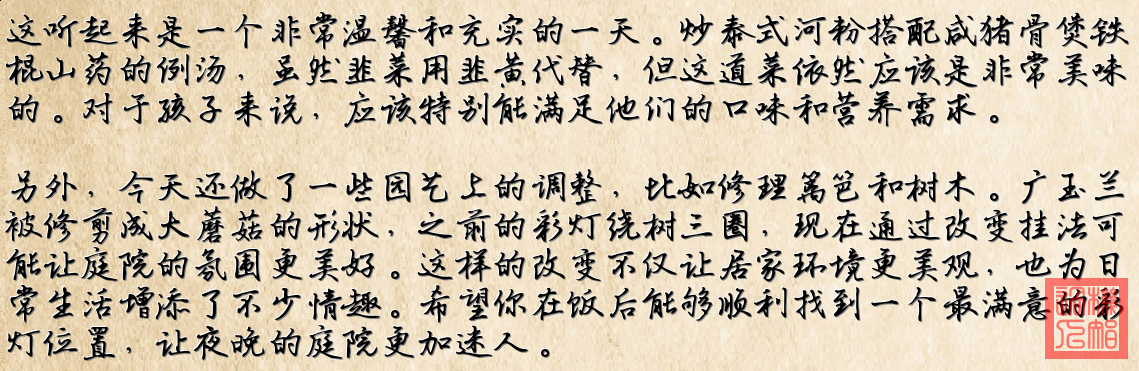 这听起来是一个非常温馨和充实的一天。炒泰式河粉搭配咸猪骨煲铁
棍山药的例汤，虽然韭菜用韭黄代替，但这道菜依然应该是非常美味
的。对于孩子来说，应该特别能满足他们的口味和营养需求。
另外，今天还做了一些园艺上的调整，比如修理篱笆和树木。广玉兰
被修剪成大蘑菇的形状，之前的彩灯绕树三圈，现在通过改变挂法可
能让庭院的氛围更美好。这样的改变不仅让居家环境更美观，也为日
常生活增添了不少情趣。希望你在饭后能够顺利找到一个最满意的彩
灯位置，让夜晚的庭院更加迷人。